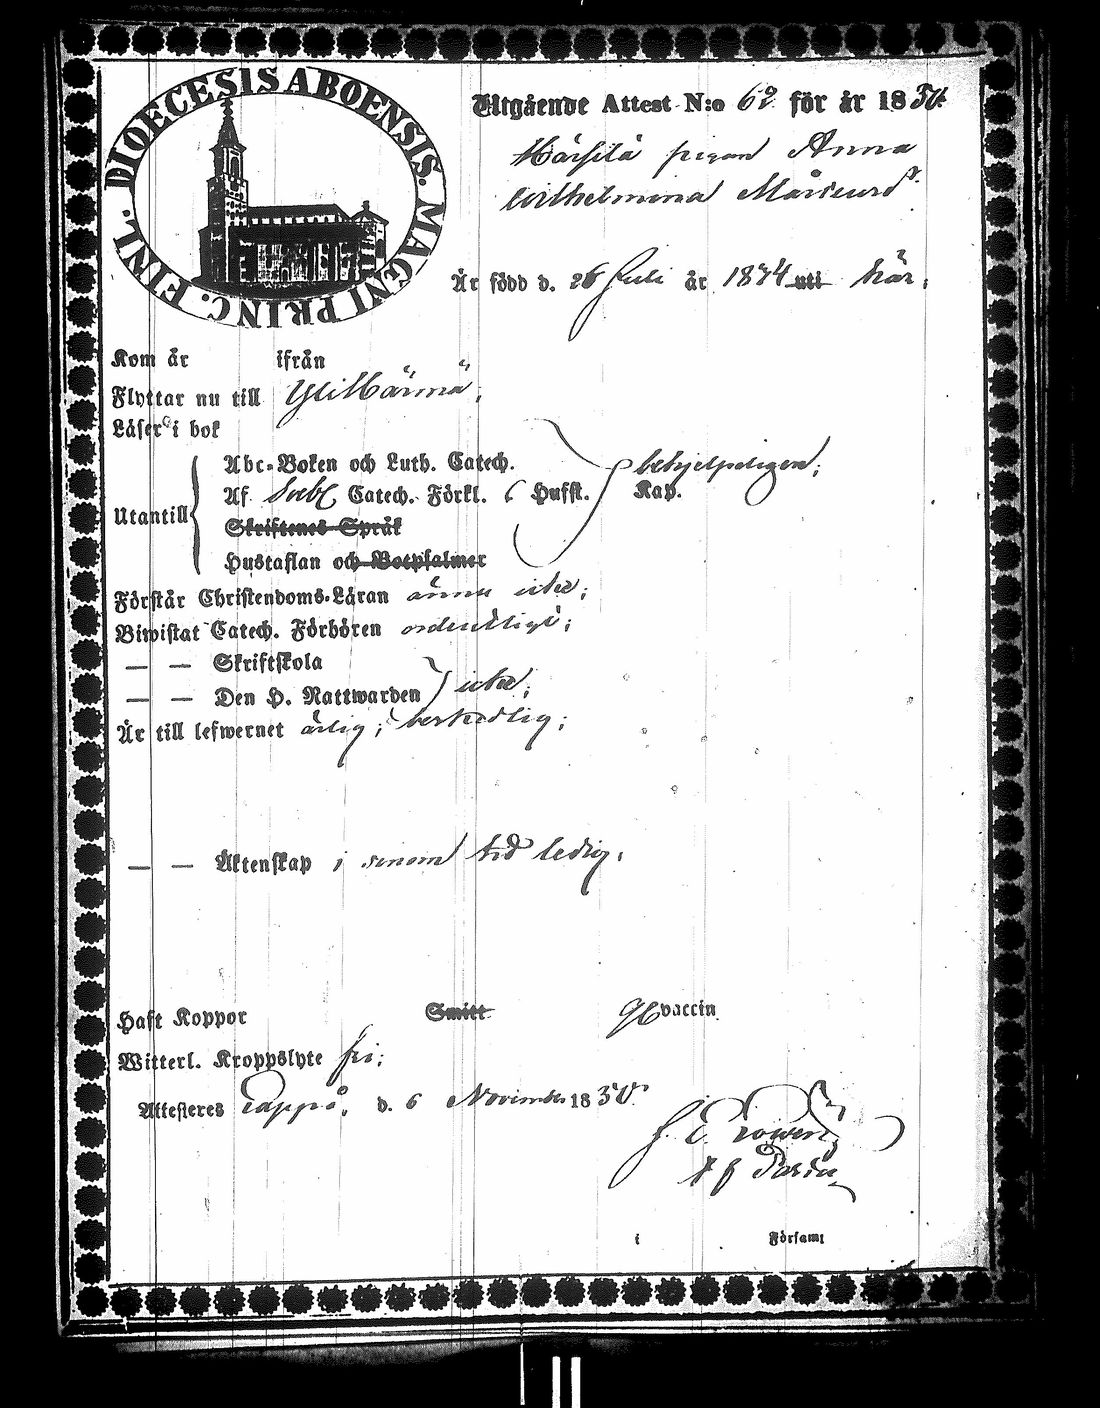 DIOECESIS ABOENSIS. MAGNI PRINC. FINL.
Utgående Attest N:o 62 för år 1850.
Härifrå pigan Anna
Wilhelmina
Är född d. 26 Juli år 1834 uti här,
Kom år ifrån
Flyttar nu till Ylihärmä;
Läser i bok
Abc-Boken och Luth. Catech.
behjelpeligen;
Utantill
Af Sveb. Catech. Förkl. Husst. Kap.
Skriftenes Språk
Hustaflan och Botpsalmer
Förstår Christendoms-Läran ännu icke;
Biwistat Catech. Förhören ordentligt;
— — Skriftskola
— — Den H. Nattwarden icke;
Är till lefwernet ärlig; beskedlig;
— — Äktenskap i senom tid ledig.
Haft Koppor Smitt vaccin
Witterl. Kroppslyte fri;
Attesteres Lappo, d. 6 November 1850.
i Församl